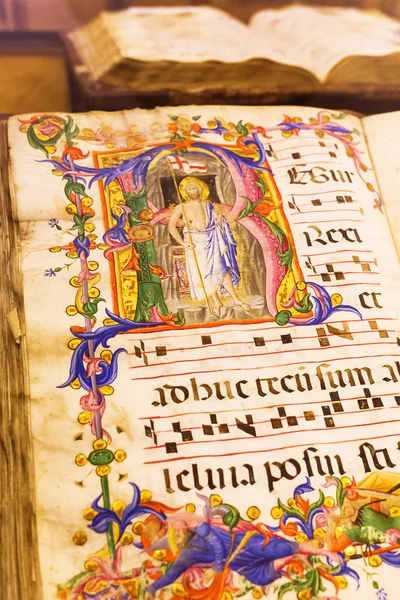 RESur
Rexi
et
adhuc tecū sum al
leluia posui sti